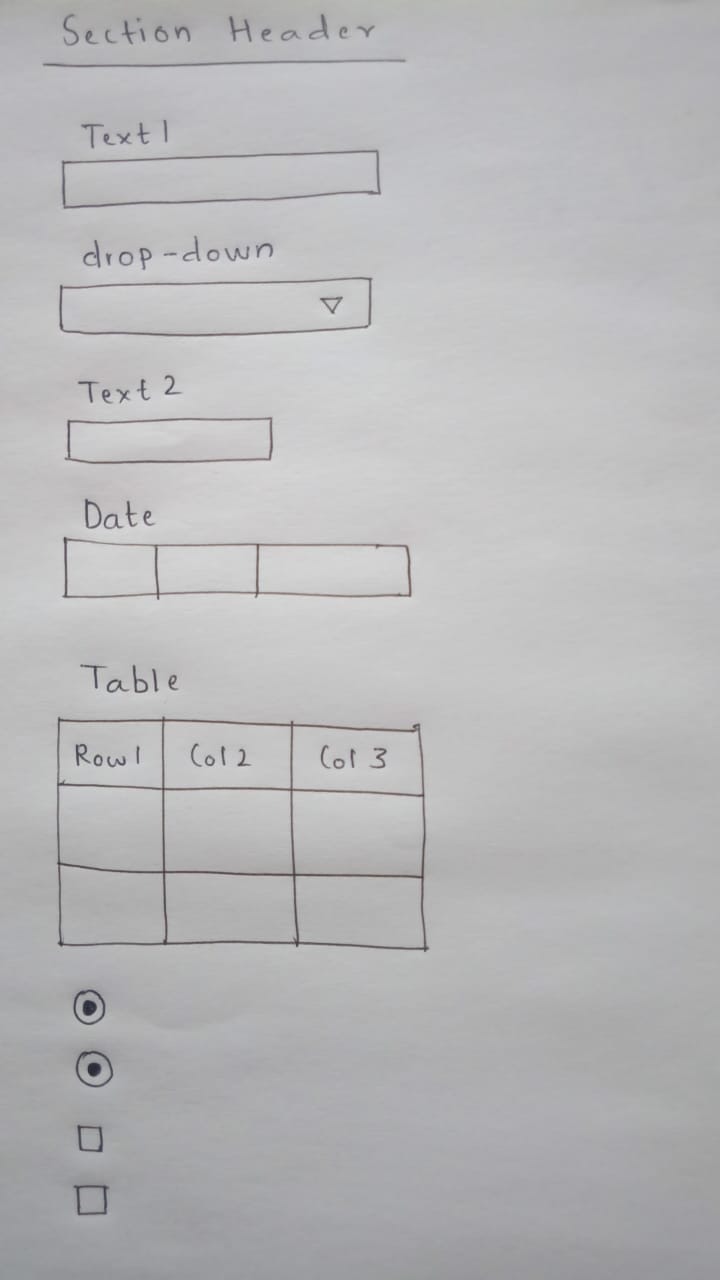 Section Header
Text 1
drop-down
Text 2
Date
Table
Row 1 Col 2 Col 3